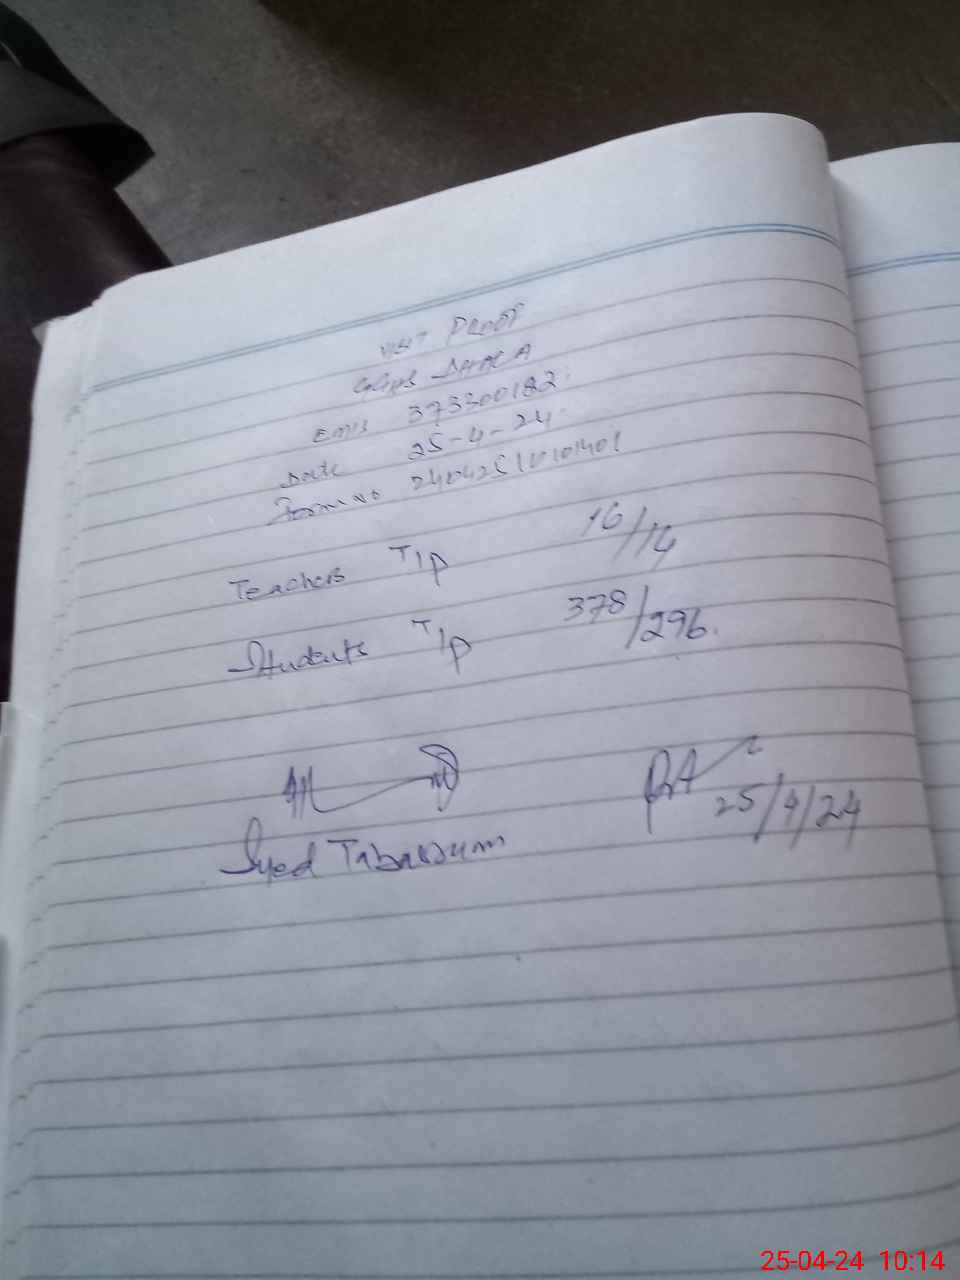 VISIT PROOF
GGHS DHACA
EMIS 373300182
Date 25-4-24
Form No
Teachers T/P 16/14
Students T/P 378/296.
25/4/24
Syed Tabassum
25-04-24 10:14